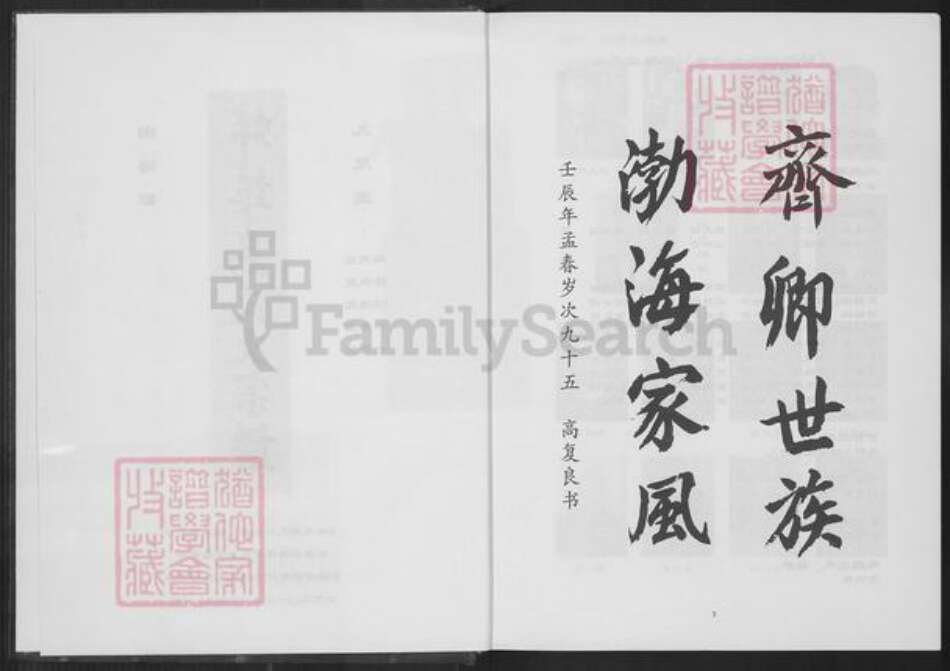 齊卿世族
渤海家風
壬辰年孟春岁次九十五 高复良书
猶他家
譜學會
收藏
猶他家
譜學會
收藏
FamilySearch